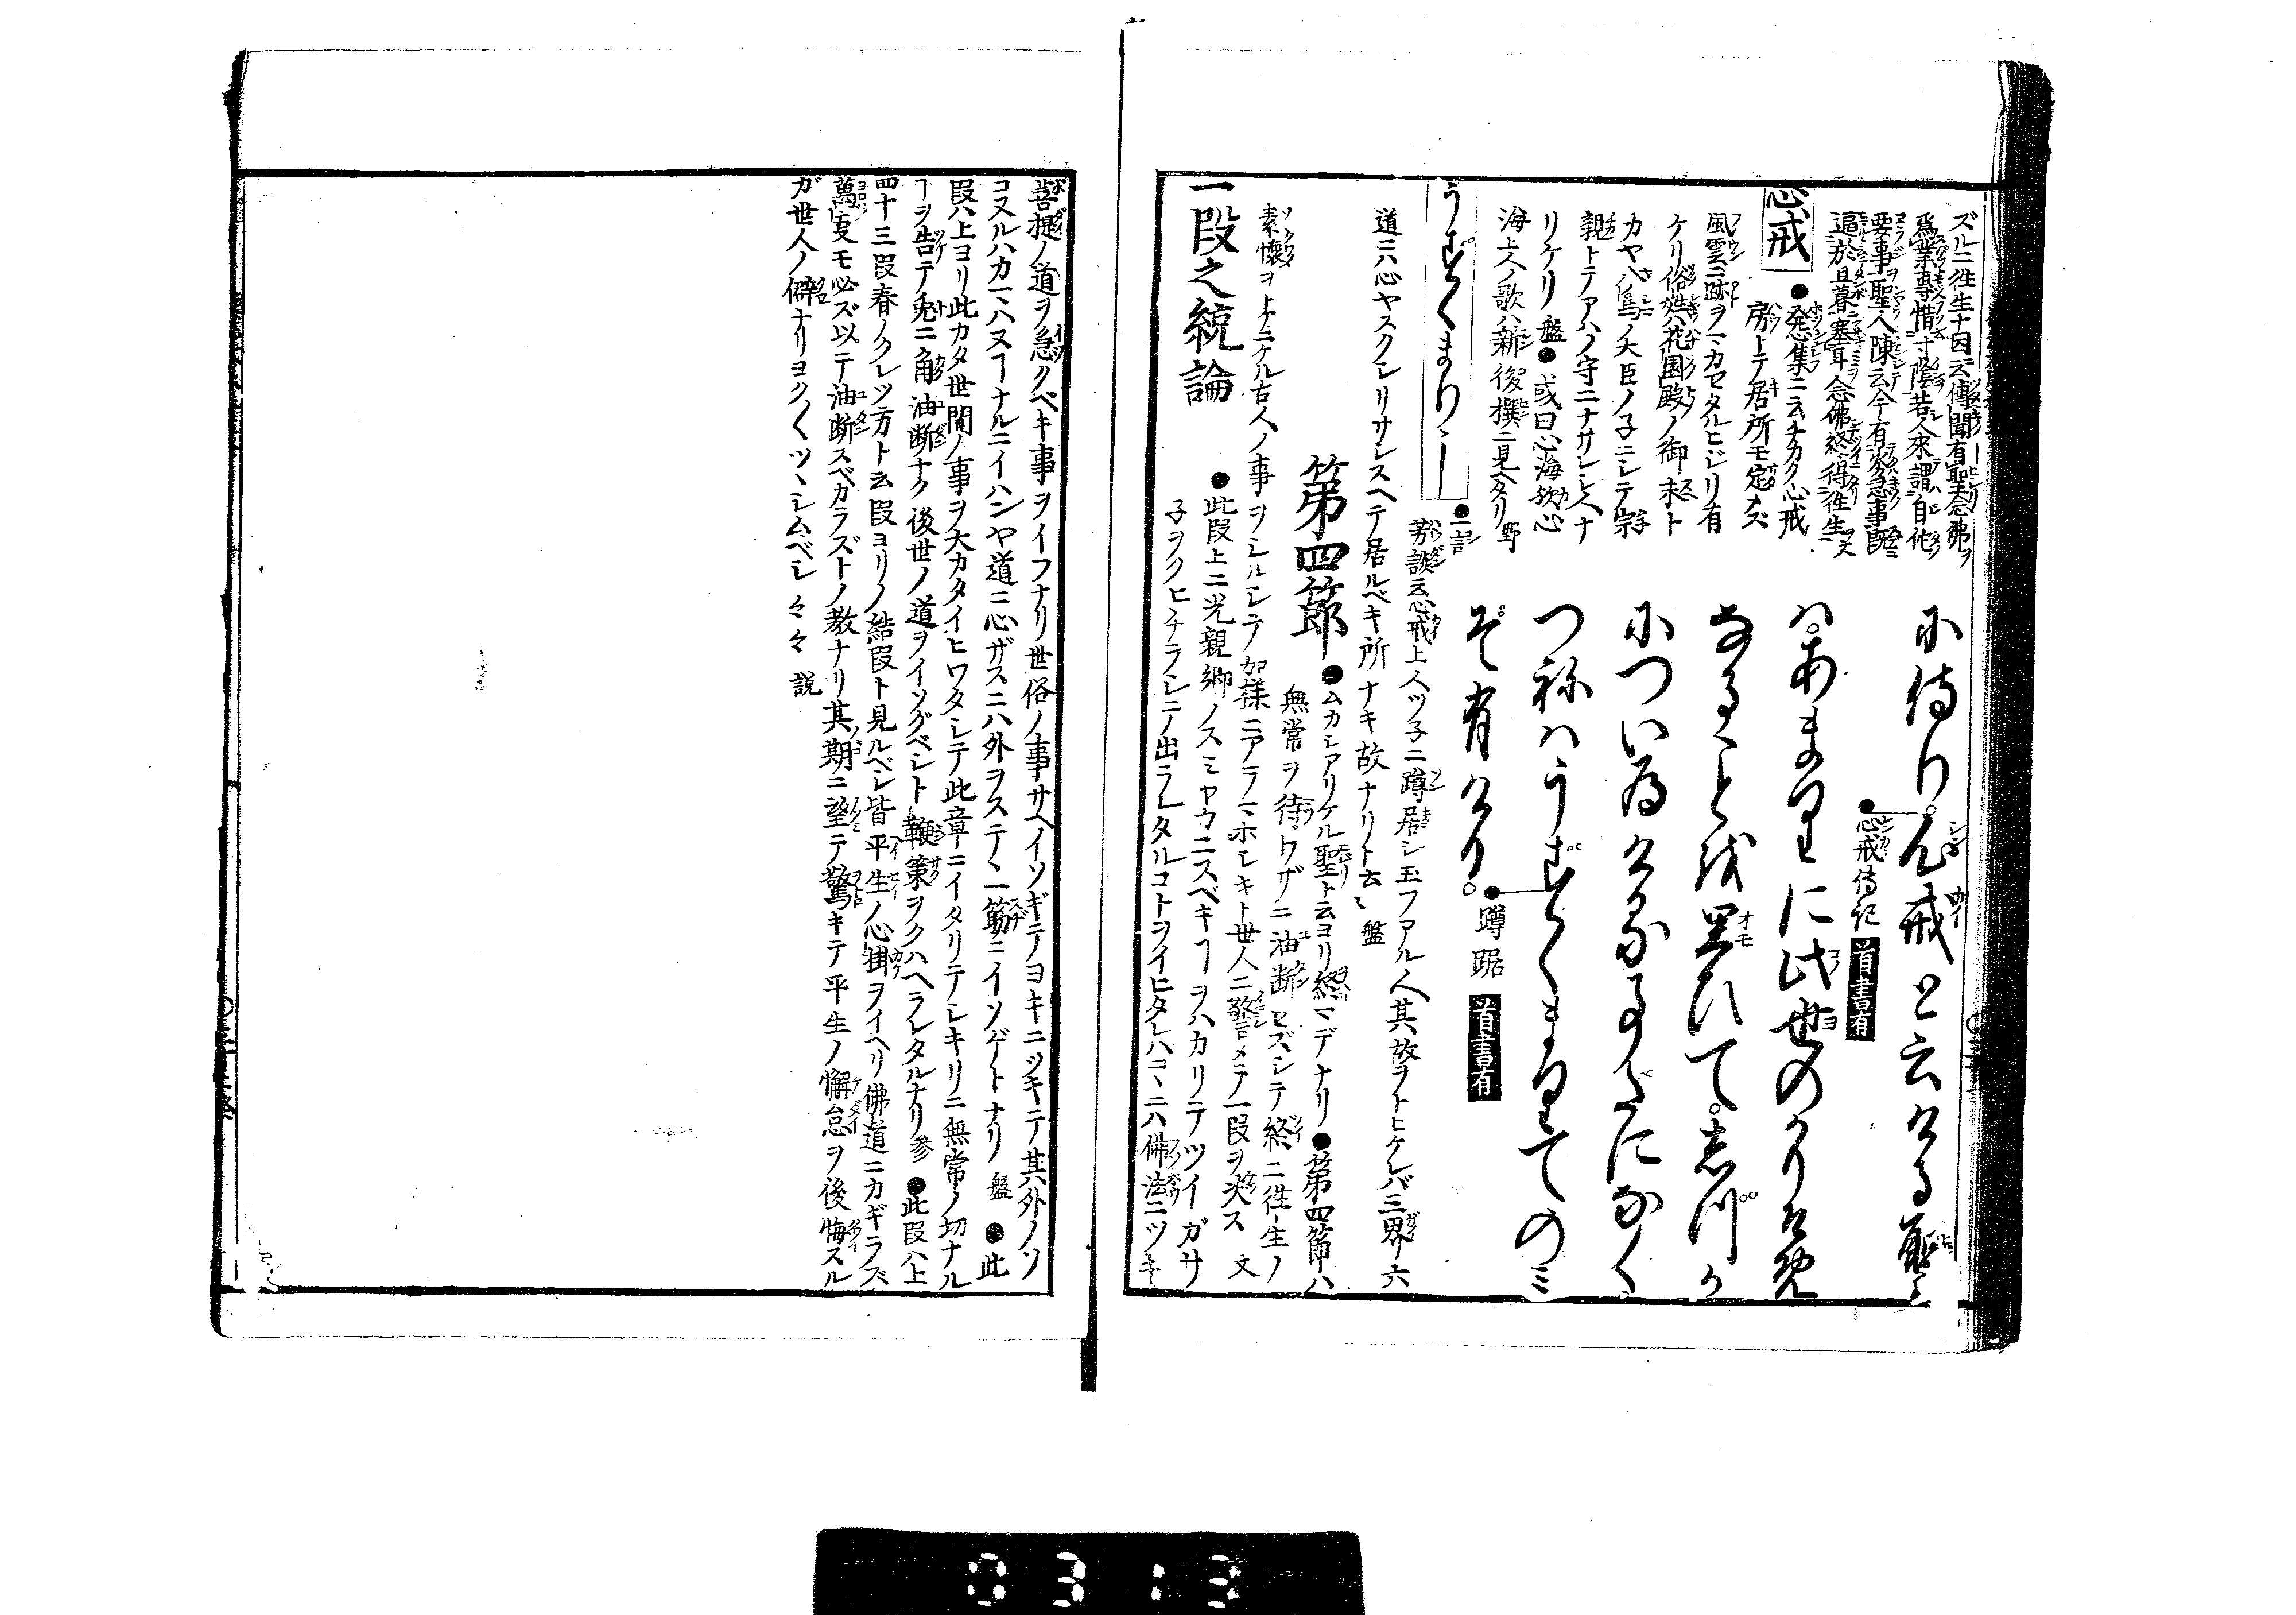 ズルニ往生十因云傳聞有聖念佛ヲ
爲業専惜寸陰若人來謂自他
要事聖人陳云今有火急事既
逼於旦暮塞耳念佛終得往生
心戒
●発心集ニ云チカク心戒
房トテ居所モ定メズ
風雲ニ跡ヲマカセタルヒジリ有
ケリ俗姓ハ花園殿ノ御末ト
カヤ八嶋ノ大臣ノ子ニシテ宗
親トテアハノ守ニナサレシ人ナ
リケリ 盤●或曰心海欤心
海上人ノ歌ハ新後撰ニ見ヘタリ 野
うずくまり
●一言
芳談云心戒上人ツ子ニ蹲居シ玉フアル人其故ヲトヒケレバ三界六
道ニハ心ヤスクシリサシスヘテ居ルベキ所ナキ故ナリト云々 盤
に侍り。心戒と云ける聖
●心戒傳記 首書有
は。あまりに此世のかりそめ
なることを思ひて。しづか
についゐけることだになく
つねはうずくまりてのミ
ぞ有ける。
●蹲踞 首書有
第四節 ●ムカシアリケル聖ト云ヨリ終マデナリ●第四節ハ
無常ヲ待トワザニ油断セズシテ終ニ往生ノ
素懐ヲトニケル古人ノ事ヲシルシテ加様ニアラマホシキト世人ニ警メテ一段ヲ決ス 文
一段之統論
●此段上ニ光親卿ノスミヤカニスベキヿヲハカリテツイガサ
子ヲクヒチラシニテ出ラレタルコトヲイヒタレバコヽニハ佛法ニツキ
菩提ノ道ヲ急クベキ事ヲイフナリ世俗ノ事サヘイソギテヨキニツキテ其外ノソ
コヌルハカマヽハヌヿナルニイハンヤ道ニ心ザスニハ外ヲステヽ一筋ニイソゲトナリ 盤 ●此
段ハ上ヨリ此カタ世間ノ事ヲ大カタイヒワタシテ此章ニイタリテシキリニ無常ノ切ナル
ヿヲ告テ兎ニ角油断ナク後世ノ道ヲイソグベシト鞭策ヲクハヘラレタルナリ 参 ●此段ハ上
四十三段春ノクレツ方ト云段ヨリノ結段ト見ルベシ皆平生ノ心掛ヲイヘリ佛道ニカギラズ
萬支モ必ズ以テ油断スベカラズトノ教ナリ其期ニ望テ驚キテ平生ノ懈怠ヲ後悔スル
ガ世人ノ僻ナリヨク〱ツヽシムベシ々々 説
0313